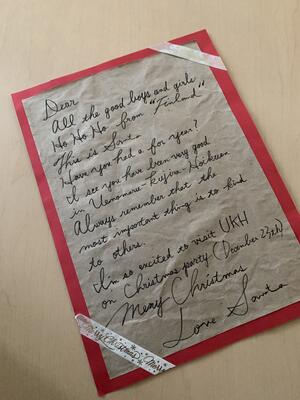 Dear
All the good boys and girls
Ho Ho Ho from "Finland"
This is Santa
Have you had a for year?
I see you have been very good
in Uenomaru-kujira Hoikuen
Always remember that the
most important thing is to kind
to others.
I'm so excited to visit UKH
on Christmas party (December 23th)
Merry Christmas
Love Santa
Merry Christmas Merry